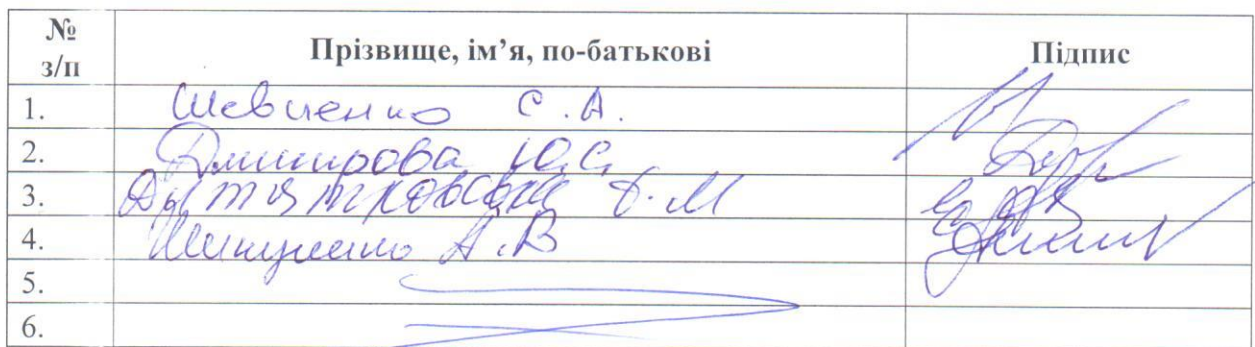 № з/п Прізвище, ім’я, по-батькові Підпис
1. Шевченко С.А.
2. Дмитрова Ю.С.
3.
4. А.В
5.
6.